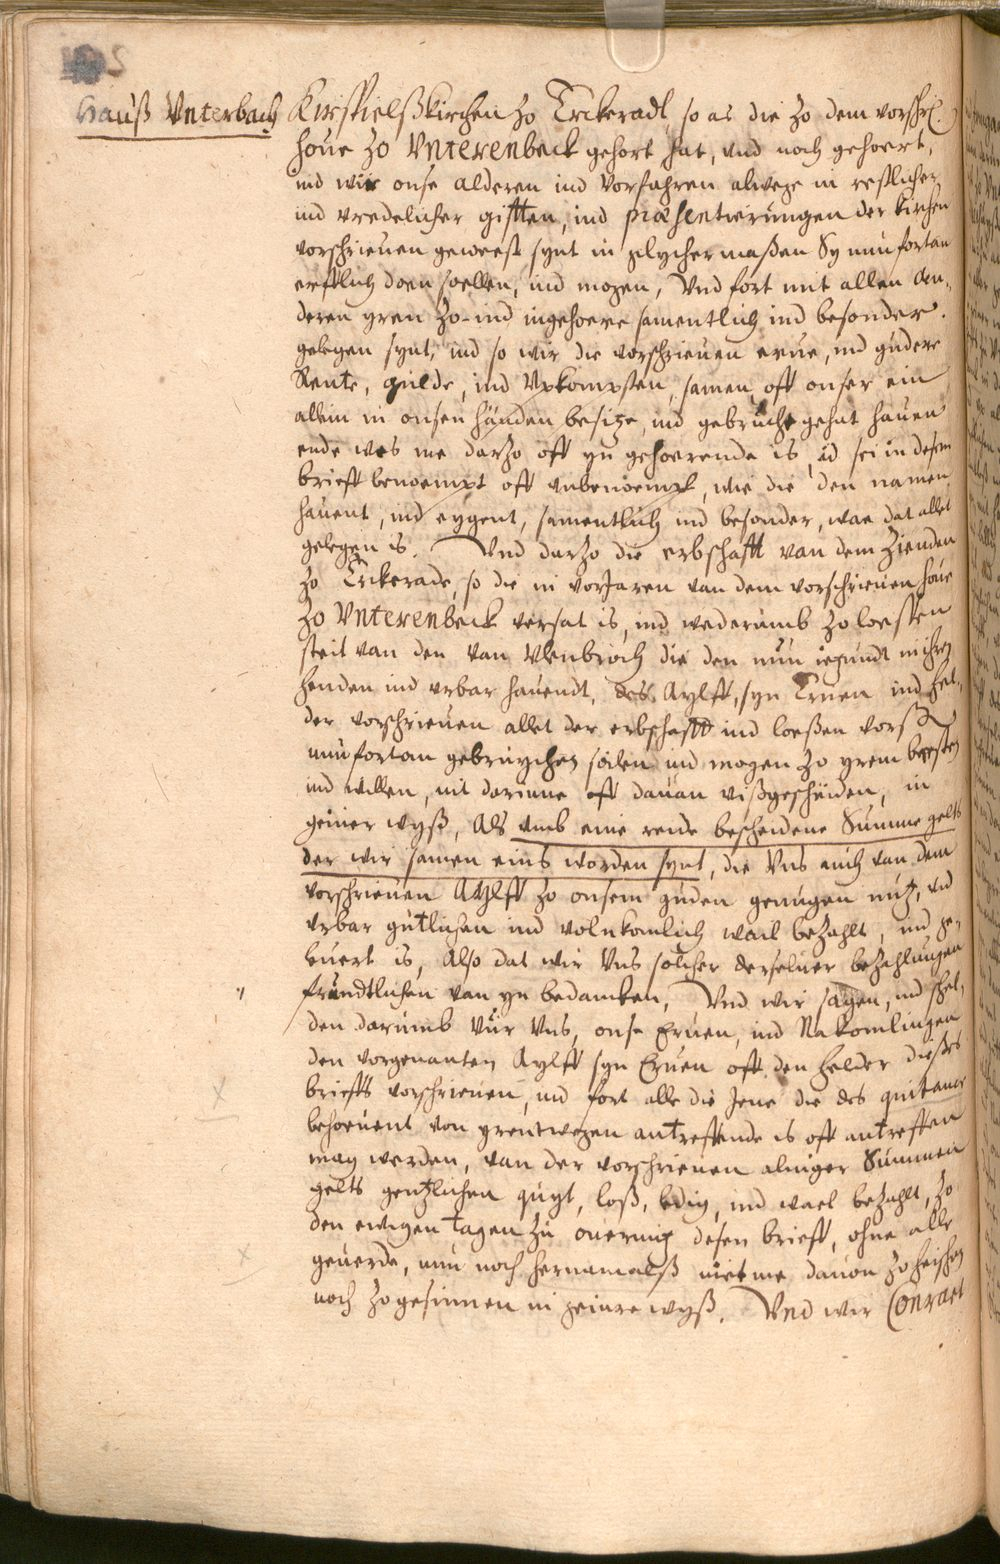 Hauß Vnterbach
Kirspielßkirchen zo Erckeradt, so as die zo dem vorschr.
houe zo Vnterenbeck gehort hat, vnd noch gehoert,
ind wir onse alderen ind Vorfahren alwege in restlicher
ind vredelicher gifften, ind præsentierungen der kirchen
vorschrieuen geweest synt in glychermaßen Sy nun fortan
erfflich doen soellen, ind mogen, Vnd fort mit allen an-
deren yren zo- ind ingehoere samentlich ind besonder.
gelegen synt, ind so wir die vorschrieuen erue, ind gudere
Rente, gulde, ind Vpkompsten, samen, oft onser ein
allein in onsen händen besitze, ind gebruche gehat hauen
ende wes me darzo oft yn gehoerende is, id sei in desem
brieff benoempt oft vnbenoempt, wie die den namen
hauent, ind eygent, samentlich ind besonder, wae dat allet
gelegen is. Vnd darzo die erbschafft van dem Zienden
zo Erckerade, so die in vorJaren van dem vorschrieuen houe
zo Vnterenbeck versat is, ind wederumb zo loessen
steit van den van Vlenbroch die den nun ietzundt in ihren
henden ind vrbar hauendt, des Aylff, syn Eruen ind hel-
der vorschrieuen allet der erbschafft ind loeßen vorß
nun fortan gebruychen sollen ind mogen zo yrem beesten
ind willen, nit darinne oft dauan vißgescheiden, in
geiner wyß, Als vmb eine reide bescheidene Summe gelts
der wir samen eins worden synt, die Vns auch van dem
vorschrieuen Aylff zo onsem guden genugen nutz, vnd
vrbar gutlichen ind volnkomlich wail bezahlt, ind ge-
buert is, Also dat wir Vns solcher derseluer bezahlungen
frundtlichen van yn bedancken, Vnd wir sagen, ind schel-
den darumb vur Vns, onse Eruen, ind Nakomlingen
den vorgenanten Aylff syn Eruen oft den helder dießes
brieffs vorschrieuen, ind fort alle die Jene die des quitance
behoeuent von yrentwegen antreffende is oft antreffen
mag werden, van der vorschrieuen alniger Summen
gelts gentzlichen quyt, loß, ledig, ind wael bezahlt, zo
den ewigen tagen zu ouermitz desen brieff, ohne alle
geuerde, nun noch hernamalß niet me dauon zo heischen
noch zo gesinnen in geinre wyß. Vnd wir Conraet